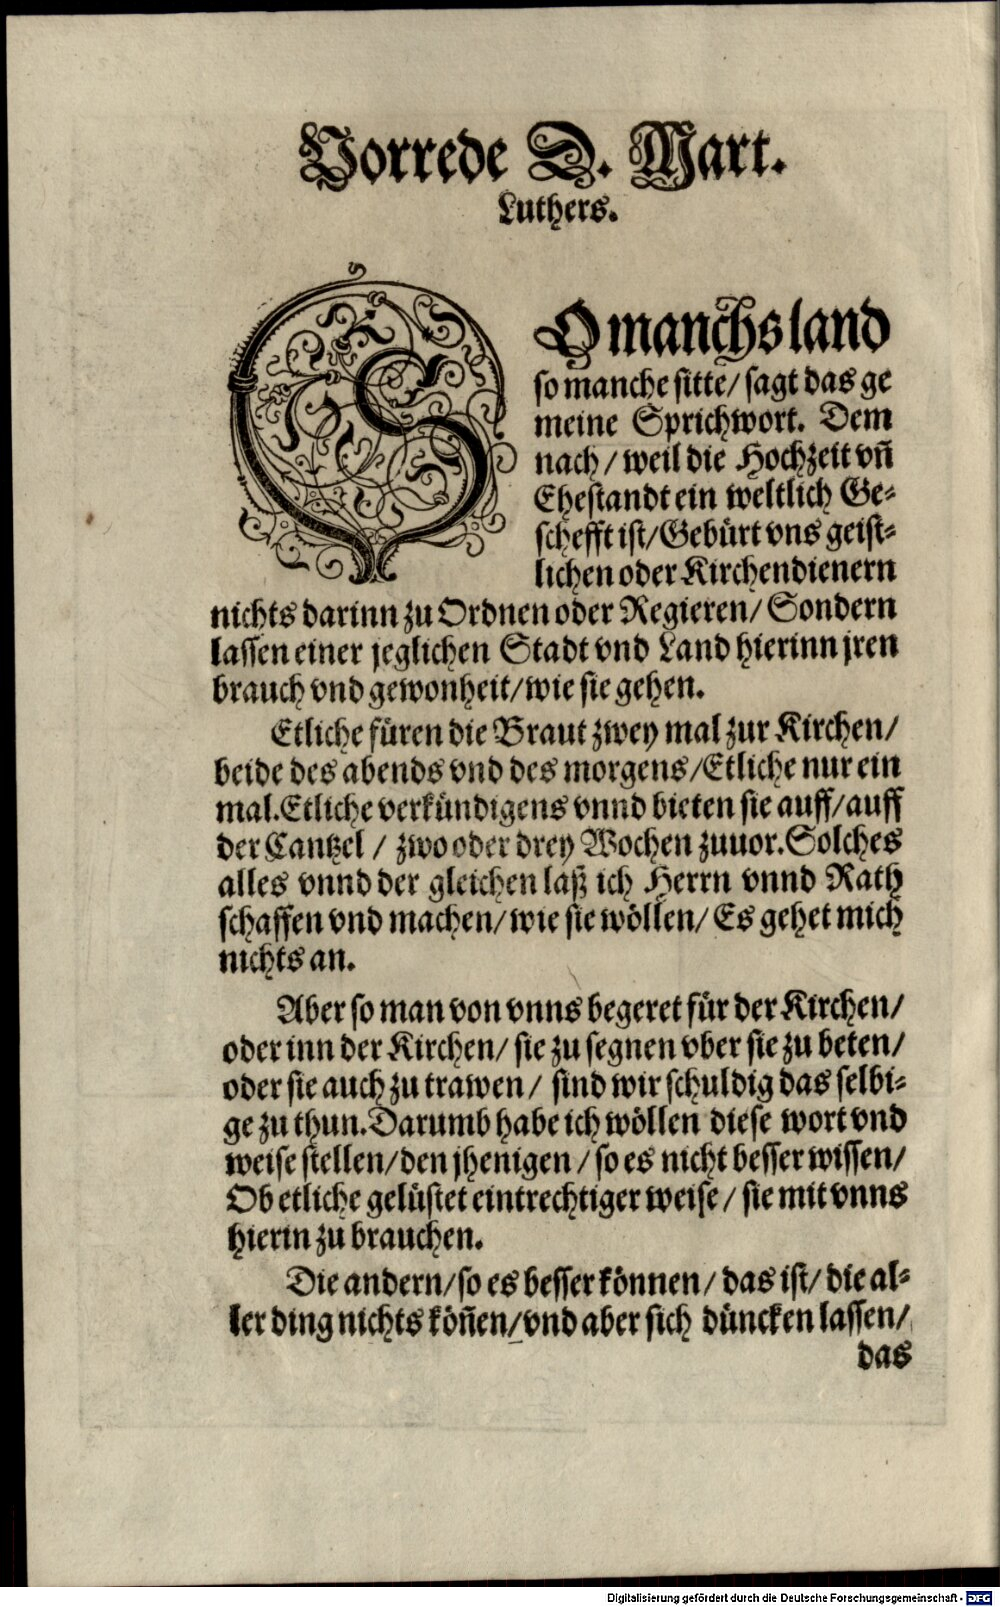 Vorrede D. Mart.
Luthers.
SO manchs land
so manche sitte/ sagt das ge
meine Sprichwort. Dem
nach/ weil die Hochzeit vn̄
Ehestandt ein weltlich Ge-
schefft ist/ Gebürt vns geist-
lichen oder Kirchendienern
nichts darinn zu Ordnen oder Regieren/ Sondern
lassen einer jeglichen Stadt vnd Land hierinn jren
brauch vnd gewonheit/ wie sie gehen.
Etliche füren die Braut zwey mal zur Kirchen/
beide des abends vnd des morgens/ Etliche nur ein
mal. Etliche verkündigens vnnd bieten sie auff/ auff
der Cantzel/ zwo oder drey Wochen zuuor. Solches
alles vnnd der gleichen laß ich Herrn vnnd Rath
schaffen vnd machen/ wie sie wöllen/ Es gehet mich
nichts an.
Aber so man von vnns begeret für der Kirchen/
oder inn der Kirchen/ sie zu segnen vber sie zu beten/
oder sie auch zu trawen/ sind wir schuldig das selbi-
ge zu thun. Darumb habe ich wöllen diese wort vnd
weise stellen/ den jhenigen/ so es nicht besser wissen/
Ob etliche gelüstet eintrechtiger weise/ sie mit vnns
hierin zu brauchen.
Die andern/ so es besser können/ das ist/ die al-
ler ding nichts kön̄en/ vnd aber sich düncken lassen/
das
Digitalisierung gefördert durch die Deutsche Forschungsgemeinschaft - DFG